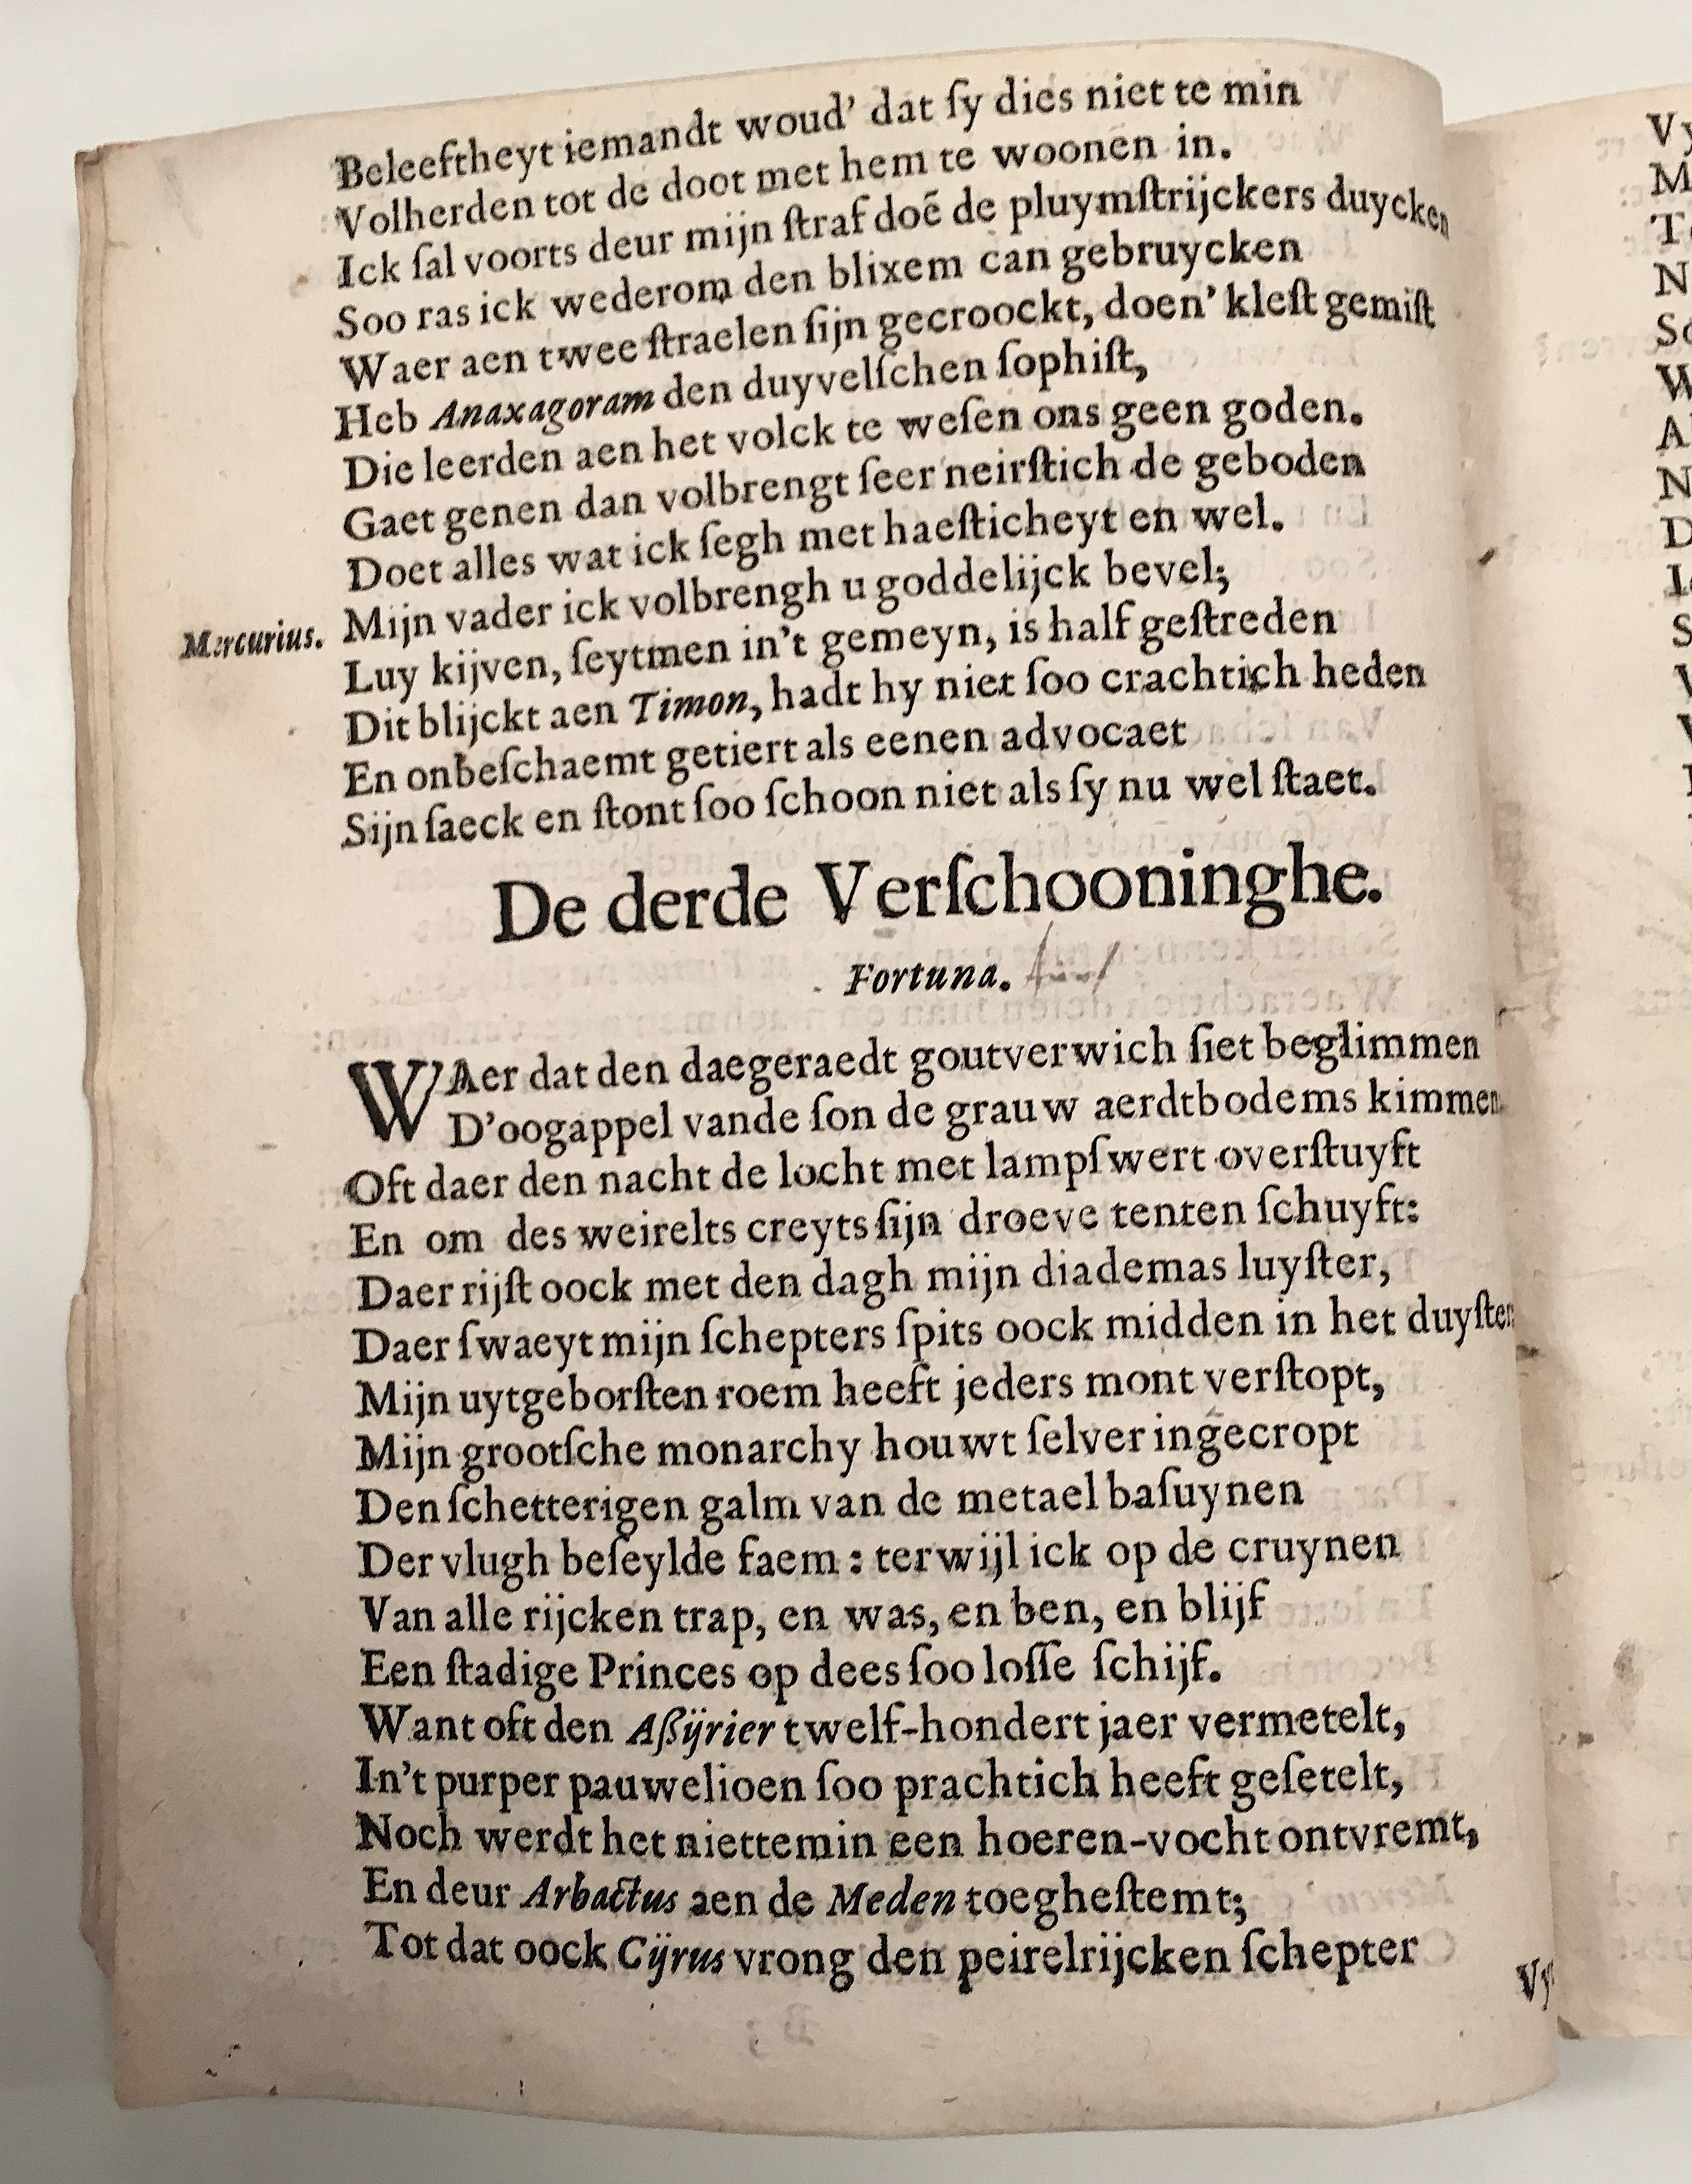 Beleeftheyt iemandt woud' dat ſy dies niet te min
Volherden tot de doot met hem te woonen in.
Ick ſal voorts deur mijn ſtraf doẽ de pluymſtrijckers duycken
Soo ras ick wederom den blixem can gebruycken
Waer aen twee ſtraelen ſijn gecroockt, doen' kleſt gemiſt
Heb Anaxagoram den duyvelſchen ſophiſt,
Die leerden aen het volck te weſen ons geen goden.
Gaet genen dan volbrengt ſeer neirſtich de geboden
Doet alles wat ick ſegh met haeſticheyt en wel.
Mercurius. Mijn vader ick volbrengh u goddelijck bevel;
Luy kijven, ſeytmen in't gemeyn, is half geſtreden
Dit blijckt aen Timon, hadt hy niet ſoo crachtich heden
En onbeſchaemt getiert als eenen advocaet
Sijn ſaeck en ſtont ſoo ſchoon niet als ſy nu wel ſtaet.
De derde Verſchooninghe.
Fortuna.
WAer dat den daegeraedt goutverwich ſiet beglimmen
D'oogappel vande ſon de grauw aerdtbodems kimmen.
Oft daer den nacht de locht met lampſwert overſtuyft
En om des weirelts creyts ſijn droeve tenten ſchuyft:
Daer rijſt oock met den dagh mijn diademas luyſter,
Daer ſwaeyt mijn ſchepters ſpits oock midden in het duyſter
Mijn uytgeborſten roem heeft jeders mont verſtopt,
Mijn grootſche monarchy houwt ſelver ingecropt
Den ſchetterigen galm van de metael baſuynen
Der vlugh beſeylde faem : terwijl ick op de cruynen
Van alle rijcken trap, en was, en ben, en blijf
Een ſtadige Princes op dees ſoo loſſe ſchijf.
Want oft den Aßÿrier twelf-hondert jaer vermetelt,
In't purper pauwelioen ſoo prachtich heeft geſetelt,
Noch werdt het niettemin een hoeren-vocht ontvremt,
En deur Arbactus aen de Meden toegheſtemt;
Tot dat oock Cÿrus vrong den peirelrijcken ſchepter